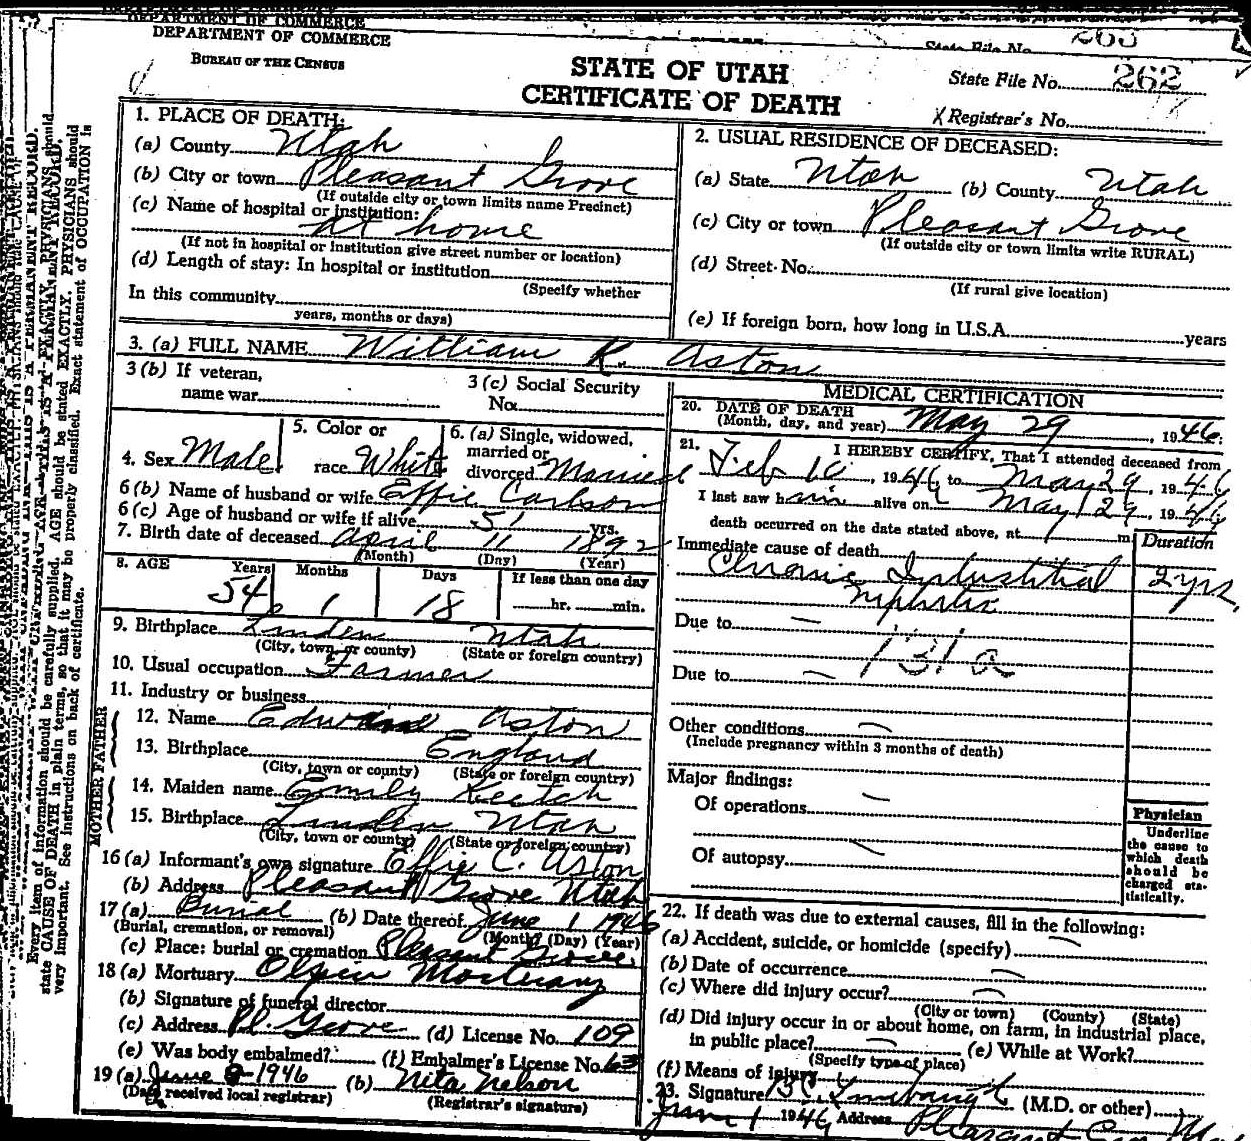 DEPARTMENT OF COMMERCE
DEPARTMENT OF COMMERCE
BUREAU OF THE CENSUS
STATE OF UTAH
CERTIFICATE OF DEATH
State File No. 263
State File No. 262
Registrar's No.
1. PLACE OF DEATH:
(a) County Utah
(b) City or town Pleasant Grove
(If outside city or town limits name Precinct)
(c) Name of hospital or institution:
at home
(If not in hospital or institution give street number or location)
(d) Length of stay: In hospital or institution
(Specify whether
In this community
years, months or days)
2. USUAL RESIDENCE OF DECEASED:
(a) State Utah (b) County Utah
(c) City or town Pleasant Grove
(If outside city or town limits write RURAL)
(d) Street No.
(If rural give location)
(e) If foreign born, how long in U.S.A. years
3. (a) FULL NAME William K. Aston
3 (b) If veteran,
name war
3 (c) Social Security
No.
4. Sex Male
5. Color or
race White
6. (a) Single, widowed,
married or
divorced Married
6 (b) Name of husband or wife Effie Carlson
6 (c) Age of husband or wife if alive 51 yrs.
7. Birth date of deceased April 11 1892
(Month) (Day) (Year)
8. AGE Years Months Days If less than one day
54 1 18 hr. min.
9. Birthplace Linden Utah
(City, town or county) (State or foreign country)
10. Usual occupation Farmer
11. Industry or business
FATHER
12. Name Edward Aston
13. Birthplace England
(City, town or county) (State or foreign country)
MOTHER
14. Maiden name Emily Keetch
15. Birthplace Linden Utah
(City, town or county) (State or foreign country)
16 (a) Informant's own signature Effie C. Aston
(b) Address Pleasant Grove Utah
17 (a) Burial (b) Date thereof June 1 1946
(Burial, cremation, or removal) (Month) (Day) (Year)
(c) Place: burial or cremation Pleasant Grove
18 (a) Mortuary Olpin Mortuary
(b) Signature of funeral director
(c) Address Pl. Grove (d) License No. 109
(e) Was body embalmed? (f) Embalmer's License No. 63
19 (a) June 8-1946 (b) Nita Nelson
(Date received local registrar) (Registrar's signature)
MEDICAL CERTIFICATION
20. DATE OF DEATH
(Month, day, and year) May 29, 1946.
21. I HEREBY CERTIFY, That I attended deceased from
Feb 10, 1946 to May 29, 1946
I last saw him alive on May 29, 1946
death occurred on the date stated above, at m.
Immediate cause of death Duration
Chronic Interstitial 2 yrs.
Nephritis
Due to —
131a
Due to —
Other conditions —
(Include pregnancy within 3 months of death)
Major findings:
Of operations —
Of autopsy —
Physician
Underline
the cause to
which death
should be
charged sta-
tistically.
22. If death was due to external causes, fill in the following:
(a) Accident, suicide, or homicide (specify) —
(b) Date of occurrence —
(c) Where did injury occur? —
(City or town) (County) (State)
(d) Did injury occur in or about home, on farm, in industrial place,
in public place? — (e) While at Work?
(Specify type of place)
(f) Means of injury
23. Signature (M.D. or other)
June 1 1946 Address Pleasant
Every item of information should be carefully supplied. AGE should be stated EXACTLY. PHYSICIANS should
state CAUSE OF DEATH in plain terms, so that it may be properly classified. Exact statement of OCCUPATION is
very important. See instructions on back of certificate.